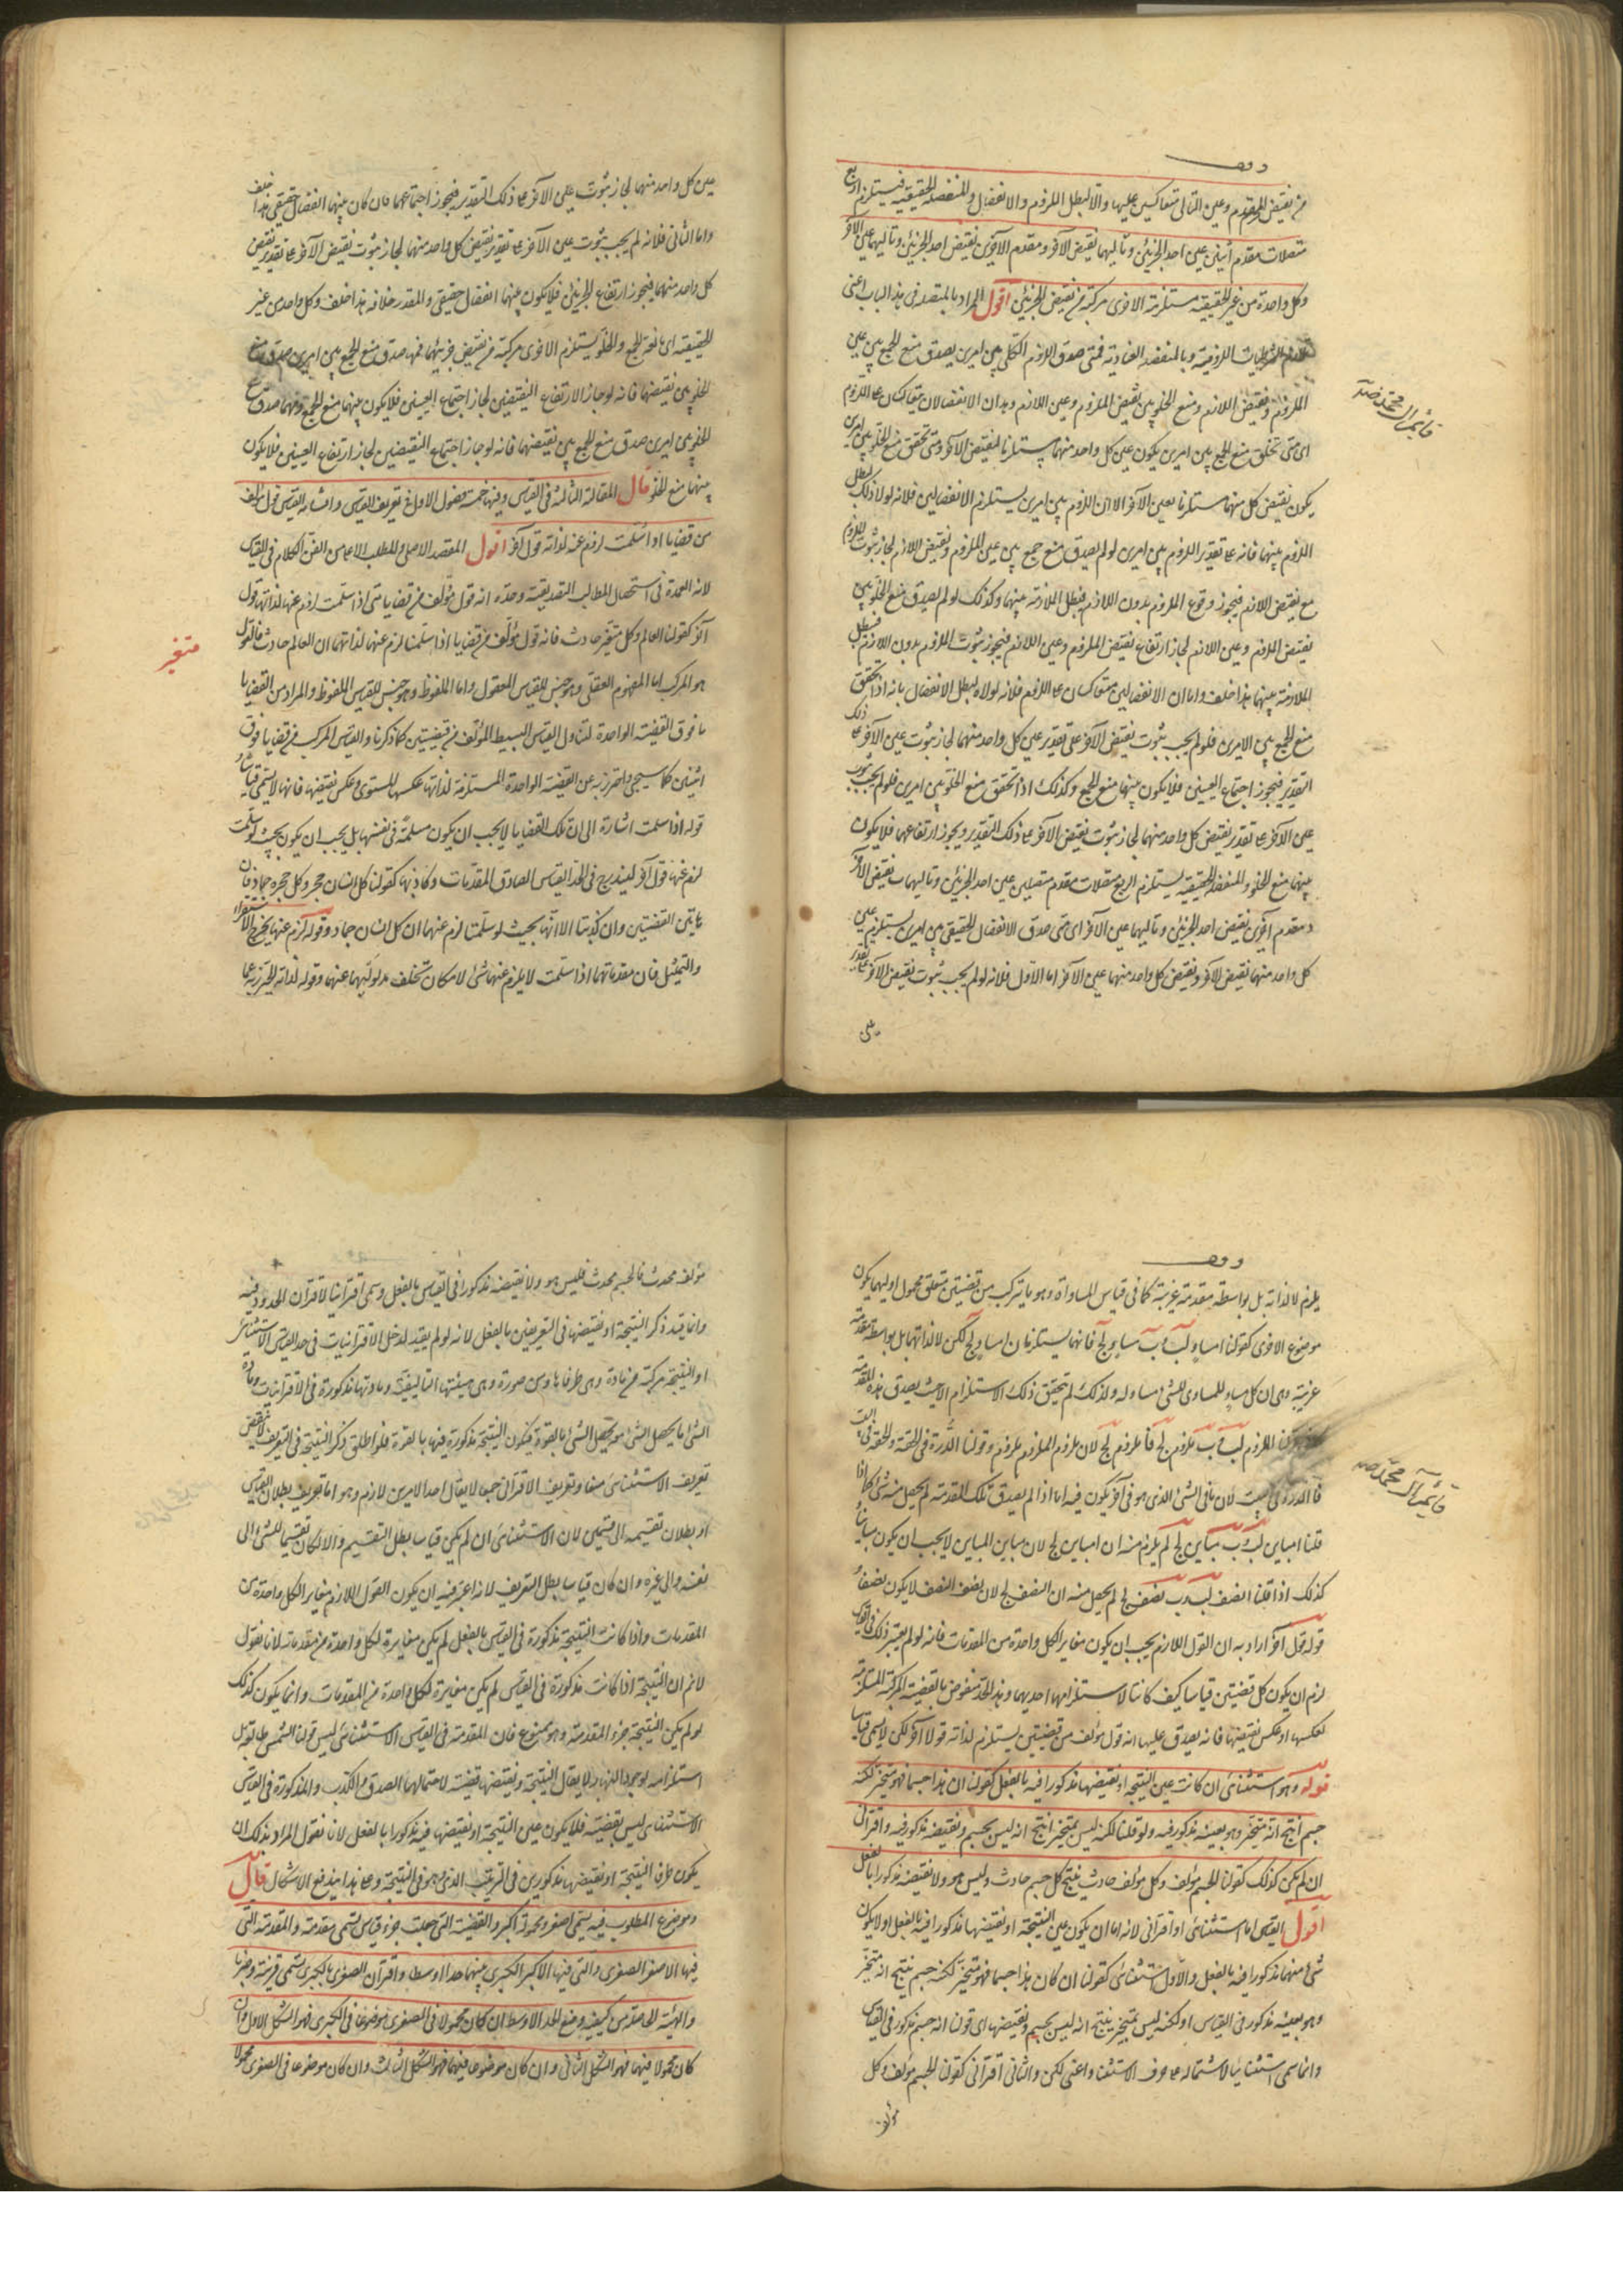 وقف
من نقيض المقدم وعين التالي متعاكسين عليها والا لبطل اللزوم والانفصال والمنفصلة الحقيقية فيستلزم اربع
متصلات مقدم اثنين عين احد الجزئين وتاليهما نقيض الآخر ومقدم الآخرين نقيض احد الجزئين وتاليهما عين الآخر
وكل واحدة من غير الحقيقية مستلزمة الاخرى مركبة من نقيض الجزئين اقول المراد بالمتصلة فى هذا الباب اعنى
تلازم الشرطيات اللزومية وبالمنفصلة العنادية فمتى صدق اللزوم الكلى بين امرين يصدق منع الجمع بين عين
الملزوم ونقيض اللازم ومنع الخلو بين نقيض الملزوم وعين اللازم وهذان الانفصالان متعاكسان على اللزوم
اى متى تحقق منع الجمع بين امرين يكون عين كل واحد منهما مستلزما لنقيض الآخر ومتى تحقق منع الخلو بين امرين
يكون نقيض كل منهما مستلزما بعين الآخر الا ان اللزوم بين امرين يستلزم الانفصالين فلانه لولا ذلك لبطل
اللزوم بينهما فانه على تقدير اللزوم بين امرين لو لم يصدق منع جمع بين عين الملزوم ونقيض اللازم لجاز ثبوت الملزوم
مع نقيض اللازم فيجوز وقوع الملزوم بدون اللازم فيبطل الملازمة بينهما وكذلك لو لم يصدق منع الخلو بين
نقيض الملزوم وعين اللازم لجاز ارتفاع نقيض الملزوم وعين اللازم فيجوز ثبوت الملزوم بدون اللازم فيبطل
الملازمة بينهما هذا خلف واما ان الانفصالين متعاكسان على اللزوم فلانه لولاه لبطل الانفصال بانه اذا تحقق
منع الجمع بين الامرين فلو لم يجب ثبوت نقيض الآخر على تقدير عين كل واحد منهما لجاز ثبوت عين الآخر على ذلك
التقدير فيجوز اجتماع العينين فلا يكون بينهما منع الجمع وكذلك اذا تحقق منع الخلو بين امرين فلو لم يجب ثبوت
عين الآخر على تقدير نقيض كل واحد منهما لجاز ثبوت نقيض الآخر على ذلك التقدير ويجوز ارتفاعهما فلا يكون
بينهما منع الخلو والمنفصلة الحقيقية يستلزم اربع متصلات مقدم متصلين عين احد الجزئين وتاليهما نقيض الآخر
ومقدم آخرين نقيض احد الجزئين وتاليهما عين الآخر اى متى صدق الانفصال الحقيقى بين امرين يستلزم عين
كل واحد منهما نقيض الآخر ونقيض كل واحد منهما عين الآخر اما الاول فلانه لو لم يجب ثبوت نقيض الآخر على تقدير
عين كل واحد منهما لجاز ثبوت عين الآخر على ذلك التقدير فيجوز اجتماعهما فان كان بينهما انفصال حقيقى هذا خلف
واما الثانى فلانه لم يجب ثبوت عين الآخر على تقدير نقيض كل واحد منهما لجاز ثبوت نقيض الآخر على تقدير نقيض
كل واحد منهما فيجوز ارتفاع الجزئين فلا يكون بينهما انفصال حقيقى والمقدر خلافه هذا خلف وكل واحد من غير
الحقيقية اى مانعة الجمع والخلو يستلزم الاخرى مركبة من نقيض جزئيهما فمهما صدق منع الجمع بين امرين صدق منع
الخلو بين نقيضهما فانه لو جاز الارتفاع النقيضين لجاز اجتماع العينين فلا يكون بينهما منع الجمع ومهما صدق منع
الخلو بين امرين صدق منع الجمع بين نقيضهما فانه لو جاز اجتماع النقيضين لجاز ارتفاع العينين فلا يكون
بينهما منع الخلو قال المقالة الثالثة فى القياس وفيها خمسة فصول الاول فى تعريف القياس واقسامه القياس قول مؤلف
من قضايا اذا سلمت لزم عنه لذاته قول آخر اقول المقصد الاصلى والمطلب الاعلى من الفن الكلام فى القياس
لانه العمدة فى استحصال المطالب التصديقية وحده انه قول مؤلف من قضايا متى اذا سلمت لزم عنها لذاتها قول
آخر كقولنا العالم وكل متغير حادث فانه قول مؤلف من قضيايا اذا سلمنا لزم عنهما لذاتهما ان العالم حادث فالقول
متغير
هو المركب اما المفهوم العقلى وهو جنس للقياس المعقول واما الملفوظ وهو جنس للقياس الملفوظ والمراد من القضايا
ما فوق القضية الواحدة لتناول القياس البسيط المؤلف من قضيتين كما ذكرنا والقياس المركب من قضايا فوق
اثنين كما سيجئ واحترز به عن القضية الواحدة المستلزمة لذاتها عكسها المستوى وعكس نقيضها فانها لا يسمى قياسا
قوله اذا سلمت اشارة الى ان تلك القضايا لا يجب ان يكون مسلمة فى نفسها بل يجب ان يكون بحيث لو سلمت
لزم عنها قول آخر ليندرج فى الحد القياس الصادق المقدمات وكاذبها كقولنا كل انسان حجر وكل حجر جماد فان
هاتين القضيتين وان كذبتا الا انهما بحيث لو سلمتا لزم عنهما ان كل انسان جماد وقوله لزم عنها يخرج الاستقراء
والتمثيل فان مقدماتهما اذا سلمت لا يلزم عنهما شئ لامكان تخلف مدلوليهما عنهما وقوله لذاته ليحترز به عما
وقف
يلزم لا لذاته بل بواسطة مقدمة غريبة كما فى قياس المساواة وهو ما يتركب من قضيتين متعلق محمول اوليهما يكون
موضوع الاخرى كقولنا ا مساو لب وب مساو لج فانهما يستلزمان ا مساو لج لكن لا لذاتهما بل بواسطة مقدمة
غريبة وهى ان كل مساو للمساوى للشئ مساو له ولذلك لم يتحقق ذلك الاستلزام الا حيث يصدق هذه المقدمة
ا ملزوم لب وب ملزوم لج فا ملزوم لج لان ملزوم الملزوم ملزوم وقولنا الدرة فى الحقة والحقة فى البيت
فالدرة فى البيت لان ما فى الشئ الذى هو فى آخر يكون فيه اما اذا لم يصدق تلك المقدمة لم يحصل منه شئ كما اذا
قلنا ا مباين لب وب مباين لج لم يلزم منه ان ا مباين لج لان مباين المباين لا يجب ان يكون مباينا
كذلك اذا قلنا ا نصف لب وب نصف لج لم يحصل منه ان ا نصف لج لان نصف النصف لا يكون نصفا
قوله قول آخر اراد به ان القول اللازم يجب ان يكون مغايرا لكل واحدة من المقدمات فانه لو لم يعتبر ذلك فى القياس
لزم ان يكون كل قضيتين قياسا كيف كانتا لاستلزامهما احديهما وهذا الحد منقوض بالقضية المركبة المستلزمة
لعكسها او عكس نقيضها فانه يصدق عليها انه قول مؤلف من قضيتين يستلزم لذاته قولا آخر لكن لا يسمى قياسا
قوله وهو استثنائى ان كانت عين النتيجة او نقيضها مذكورا فيه بالفعل كقولنا ان هذا جسما فهو متحيز لكنه
جسم انتج انه متحيز وهو بعينه مذكور فيه ولو قلنا لكنه ليس بمتحيز انتج انه ليس بجسم ونقيضه مذكور فيه واقترانى
ان لم يكن كذلك كقولنا الجسم مؤلف وكل مؤلف حادث ينتج كل جسم حادث وليس هو ولا نقيضه مذكورا بالفعل
اقول القياس اما استثنائى او اقترانى لانه اما ان يكون عين النتيجة او نقيضها مذكورا فيه بالفعل اولا يكون
شئ منهما مذكورا فيه بالفعل والاول استثنائى كقولنا ان كان هذا جسما فهو متحيز لكنه جسم ينتج انه متحيز
وهو بعينه مذكور فى القياس او لكنه ليس بمتحيز ينتج انه ليس بجسم ونقيضها اى قولنا انه جسم مذكور فى القياس
وانما سمى استثنائيا لاشتماله على حرف الاستثناء واعنى لكن والثانى اقترانى كقولنا الجسم مؤلف وكل
مؤلف
مؤلف محدث فالجسم محدث فليس هو ولا نقيضه مذكورا فى القياس بالفعل وسمى اقترانيا لاقتران الحدود فيه
وانما قيد ذكر النتيجة او نقيضها فى التعريفين بالفعل لانه لو لم يقيد لدخل الاقترانيات فى حد القياس الاستثنائى
اذ النتيجة مركبة من مادة وهى طرفاها ومن صورة وهى هيئتها التاليفية ومادتها مذكورة فى الاقترانيات ومادة
الشئ ما يحصل الشئ به يحصل الشئ بالقوة فيكون النتيجة مذكورة فيها بالقوة فلو اطلق ذكر النتيجة فى التعريف لانتقض
تعريف الاستثنائى منعا وتعريف الاقترانى جمعا لا يقال احد الامرين لازم وهو اما تعريف بطلان القياس
او بطلان تقسيمه الى قسمين لان الاستثنائى ان لم يكن قياسا بطل التقسيم والا لكان تقسيما للشئ الى
نفسه والى غيره وان كان قياسا بطل التعريف لانه اعتبر فيه ان يكون القول اللازم مغايرا لكل واحدة من
المقدمات واذا كانت النتيجة مذكورة فى القياس بالفعل لم يكن مغايرة لكل واحدة من مقدماته لانا نقول
لانم ان النتيجة اذا كانت مذكورة فى القياس لم يكن مغايرة لكل واحدة من المقدمات وانما يكون كذلك
لو لم يكن النتيجة جزء المقدمة وهو ممنوع فان المقدمة فى القياس الاستثنائى ليس قولنا الشمس طالعة بل
استلزامه لوجود النهار ولا يقال النتيجة ونقيضها قضية لاحتمالهما الصدق والكذب والمذكورة فى القياس
الاستثنائى ليس بقضية فلا يكون عين النتيجة او نقيضها فيه مذكورا بالفعل لانا نقول المراد بذلك ان
يكون طرفا النتيجة او نقيضها مذكورين فى الترتيب الذى هو فى النتيجة وعلى هذا يندفع الاشكال قال
وموضوع المطلوب فيه يسمى اصغر ومحموله اكبر والقضية التى جعلت جزء قياس يسمى مقدمة والمقدمة التى
فيها الاصغر الصغرى والتى فيها الاكبر الكبرى بينهما حدا اوسط واقتران الصغرى بالكبرى يسمى قرينة وضربا
والهيئة الحاصلة من كيفية وضع الحد الاوسط ان كان محمولا فى الصغرى موضوعا فى الكبرى فهو الشكل الاول وان
كان محمولا فيهما فهو الشكل الثانى وان كان موضوعا فيهما فهو الشكل الثالث وان كان موضوعا فى الصغرى محمولا